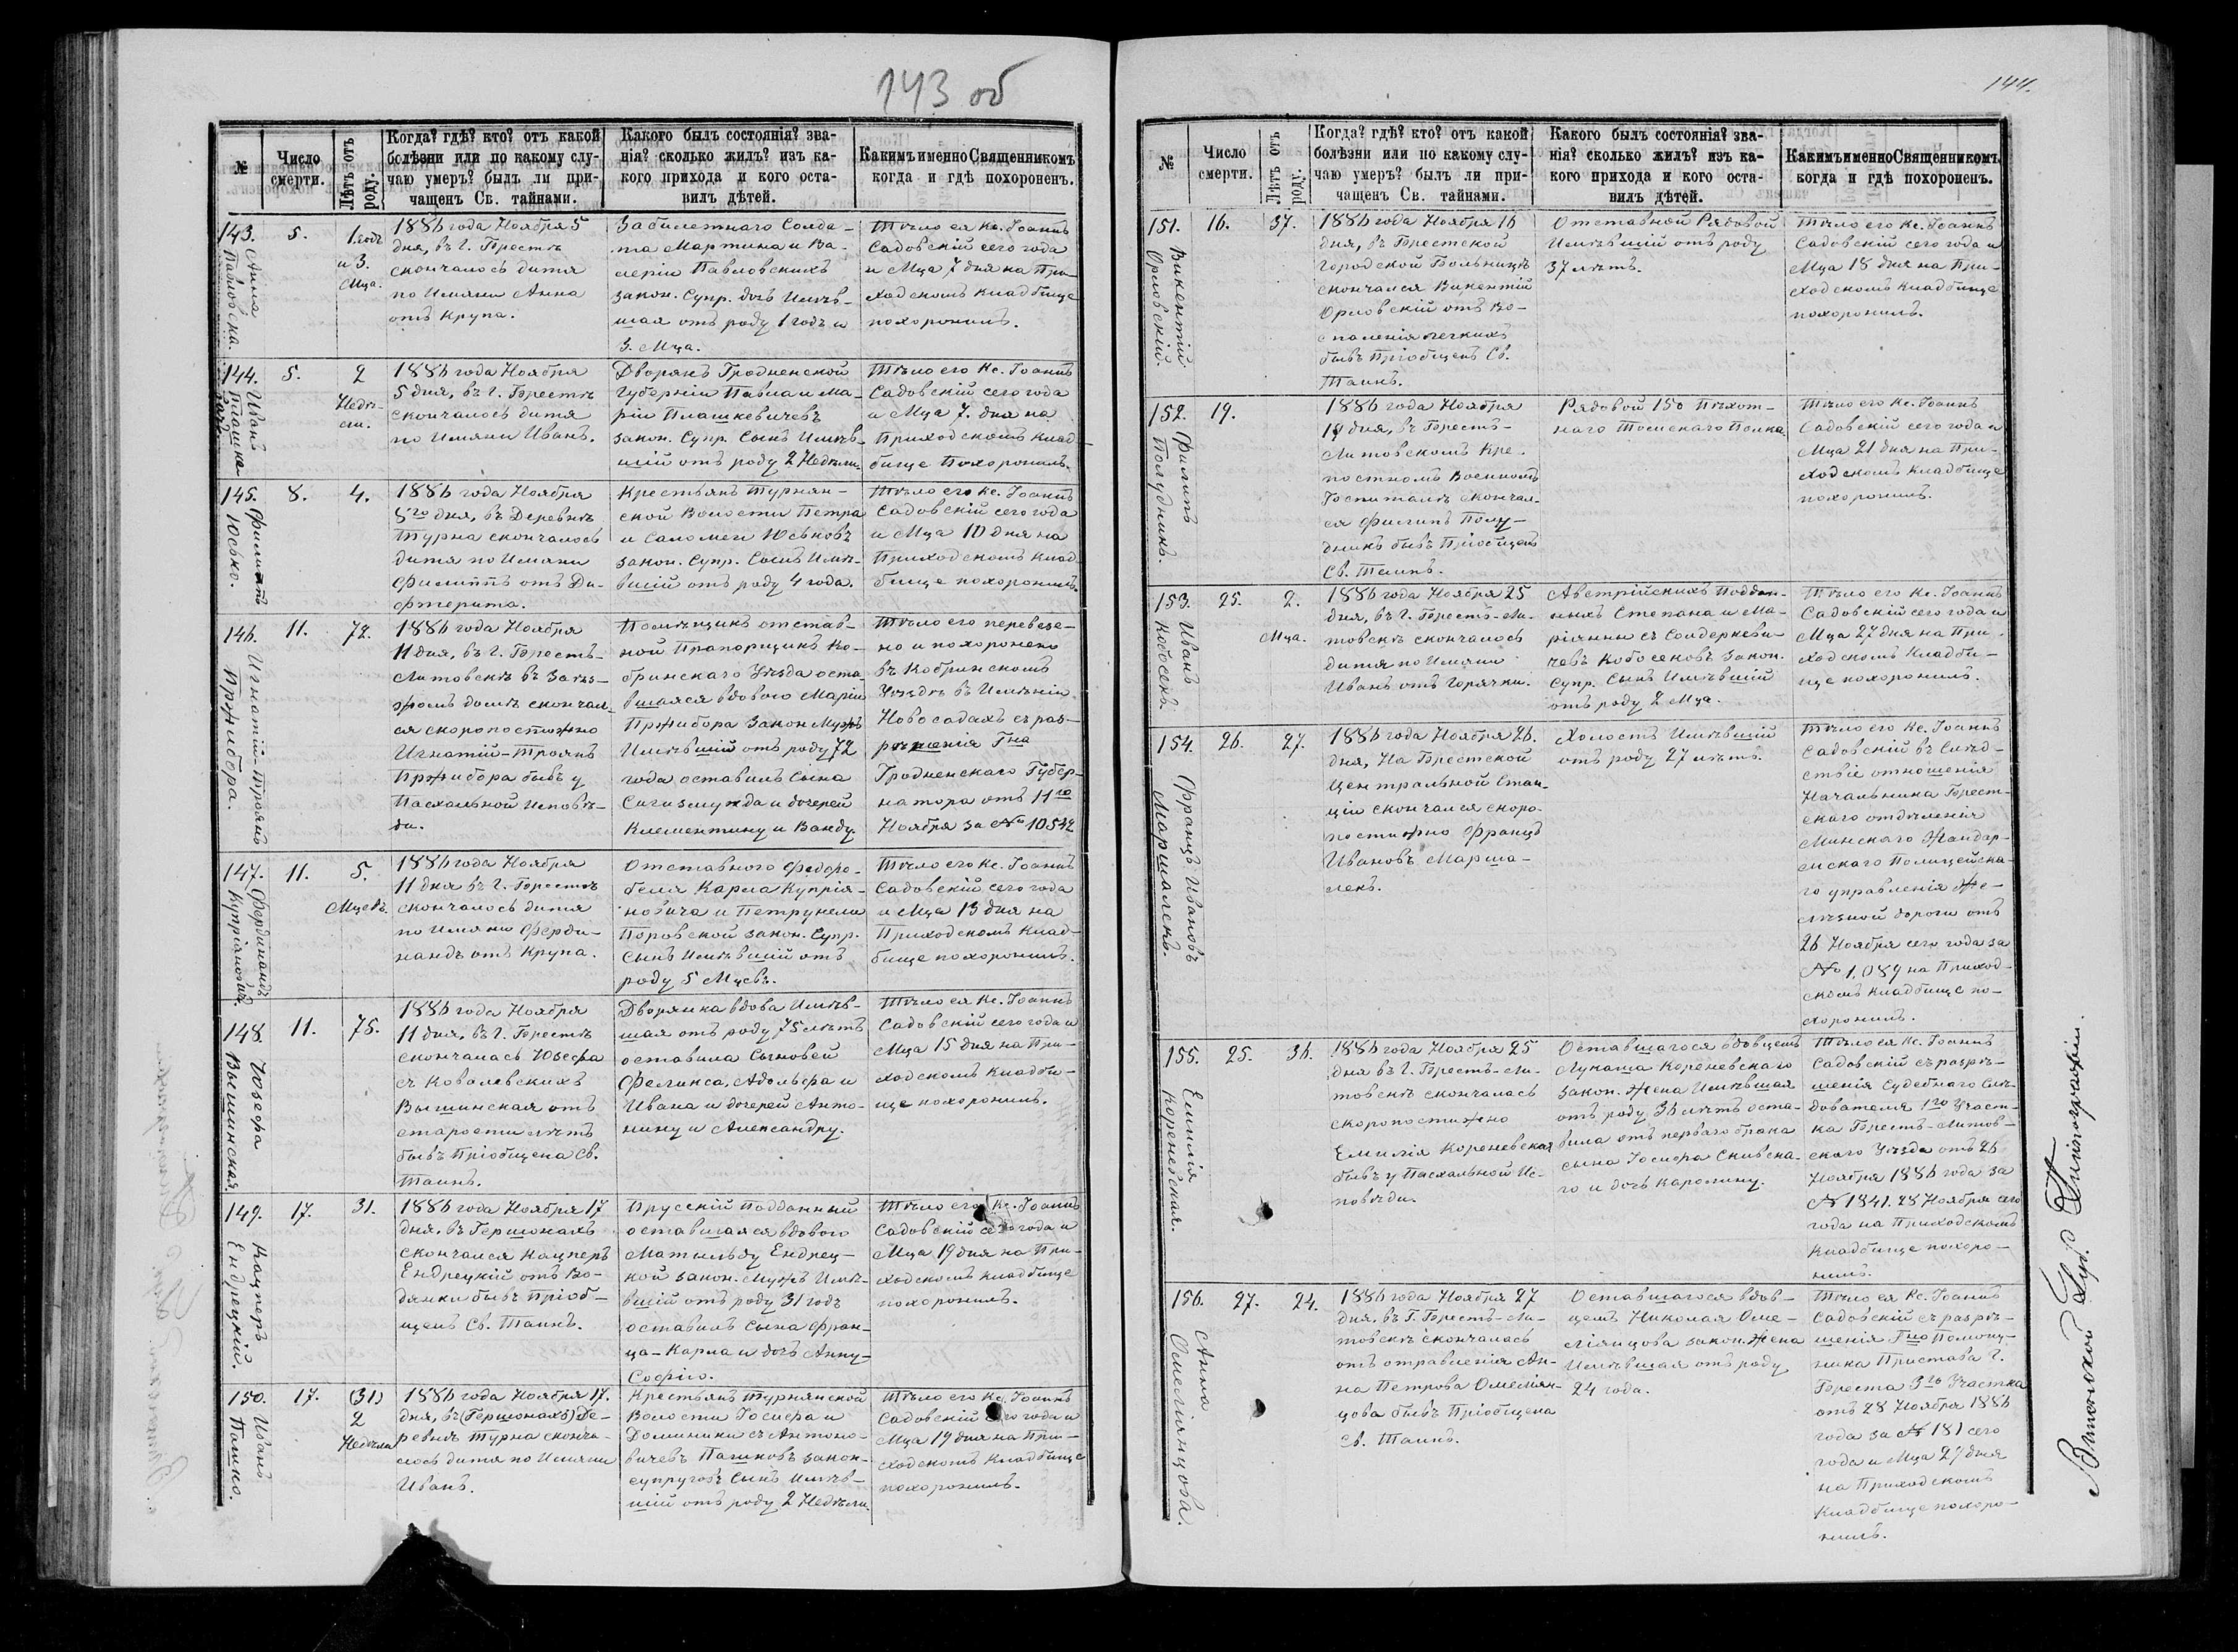 143 об
№
Число
смерти.
Лѣтъ отъ
роду.
Когда? гдѣ? кто? отъ какой
болѣзни или по какому слу-
чаю умеръ? былъ ли при-
чащенъ Св. тайнами.
Какого былъ состоянія? зва-
нія? сколько жилъ? изъ ка-
кого прихода и кого оста-
вилъ дѣтей.
Какимъ именно Священникомъ
когда и гдѣ похороненъ.
143.
Анна
Павловска.
5.
1 годъ
и 3.
Мца.
1886 года Ноября 5
дня, въ г. Брестѣ
скончалось дитя
по Имяни Анна
отъ крупа.
Забилетнаго Солда-
та Мартина и Ва-
леріи Павловскихъ
закон. Супр. дочь Имѣв-
шая отъ роду 1 годъ и
3. Мца.
Тѣло ея Кс. Іоаннъ
Садовскій сего года
и Мца 7 дня на При-
ходскомъ кладбище
похоронилъ.
144.
Иванъ
Плашке-
5.
2
Недѣ-
ли.
1886 года Ноября
5 дня, въ г. Брестѣ
скончалось дитя
по Имяни Иванъ.
Дворянъ Гродненской
Губерніи Павла и Ма-
ріи Плашкевичевъ
закон. Супр. Сынъ Имѣв-
шій отъ роду 2 Недѣли.
Тѣло его Кс. Іоаннъ
Садовскій сего года
и Мца 7. дня на
Приходскомъ клад-
бище Похоронилъ.
145.
Филиппъ
Юсько.
8.
4.
1886 года Ноября
5го дня, въ Деревнѣ
Турна скончалось
дитя по Имяни
Филиппъ отъ Ди-
фтерита.
Крестьянъ Турнян-
ской Волости Петра
и Саломеи Юськовъ
закон. Супр. Сынъ Имѣ-
вшій отъ роду 4 года.
Тѣло его Кс. Іоаннъ
Садовскій сего года
и Мца 10 дня на
Приходскомъ клад-
бище похоронилъ.
146.
Игнатій-Троянъ
Пржибора.
11.
72.
1886 года Ноября
11 дня, въ г. Брестъ-
Литовскѣ въ Заѣз-
жомъ домѣ скончал-
ся скоропостижно
Игнатій-Троянъ
Пржибора бывъ у
Пасхальной Исповѣ-
ди.
Помѣщикъ отстав-
ной Прапорщикъ Ко-
бринскаго Уѣзда оста-
вшаяся вдовою Маріи
Пржибора Закон Мужъ
Имѣвшій отъ роду 72
года оставилъ Сына
Сигизмунда и дочерей
Клементину и Ванду.
Тѣло его перевезе-
но и похоронено
въ Кобринскомъ
Уѣздѣ въ Имѣніи
Новосадахъ съ раз-
рѣшенія Гна
Гродненскаго Губер-
натора отъ 11го
Ноября за № 10542
147.
Фердинандъ
Купріяновичъ.
11.
5.
Мцевъ.
1886 года Ноября
11 дня въ г. Брестѣ
скончалось дитя
по Имяни Ферди-
нандъ отъ Крупа.
Отставного Фельдфе-
беля Карла Купрія-
новича и Петрунели
Поровской закон. Супр.
Сынъ Имѣвшій отъ
роду 5 Мцевъ.
Тѣло его Кс. Іоаннъ
Садовскій сего года
и Мца 13 дня на
Приходскомъ клад-
бище похоронилъ.
148.
Юзефа
Вышинская.
11.
75.
1886 года Ноября
11 дня, въ г. Брестѣ
скончалась Юзефа
съ Ковалевскихъ
Вышинская отъ
старости лѣтъ
бывъ Пріобщена Св.
Таинъ.
Дворянка вдова Имѣв-
шая отъ роду 75 лѣтъ
оставила Сыновей
Феликса, Адольфа и
Ивана и дочерей Анто-
нину и Александру.
Тѣло ея Кс. Іоаннъ
Садовскій сего года и
Мца 15 дня на При-
ходскомъ кладби-
ще похоронилъ.
149.
Кацперъ
Ендрецкій.
17.
31.
1886 года Ноября 17
дня, въ Гершонахъ
скончался Кацперъ
Ендрецкій отъ Во-
дянки бывъ Пріоб-
щенъ Св. Таинъ.
Прусскій Подданный
оставшаяся вдовою
Матильду Ендрец-
кой закон. Мужъ Имѣ-
вшій отъ роду 31 годъ
оставилъ Сына Фран-
ца-Карла и дочь Анну-
Софію.
Тѣло его Кс. Іоаннъ
Садовскій сего года и
Мца 19 дня на При-
ходскомъ кладбище
похоронилъ.
150.
Иванъ
Пашко.
17.
(31)
2
Недѣли
1886 года Ноября 17.
дня, въ (Гершонахъ) Де-
ревнѣ Турна сконча-
лось дитя по Имяни
Иванъ.
Крестьянъ Турнянской
Волости Іосифа и
Доминики съ Антоно-
вичевъ Пашковъ закон-
супруговъ Сынъ Имѣв-
шій отъ роду 2 Недѣли.
Тѣло его Кс. Іоаннъ
Садовскій сего года и
Мца 19 дня на При-
ходскомъ кладбище
похоронилъ.
144.
№
Число
смерти.
Лѣтъ отъ
роду.
Когда? гдѣ? кто? отъ какой
болѣзни или по какому слу-
чаю умеръ? былъ ли при-
чащенъ Св. тайнами.
Какого былъ состоянія? зва-
нія? сколько жилъ? изъ ка-
кого прихода и кого оста-
вилъ дѣтей.
Какимъ именно Священникомъ
когда и гдѣ похороненъ.
151.
Викентій
Орловскій.
16.
37.
1886 года Ноября 16
дня, въ Брестской
городской Больницѣ
скончался Викентій
Орловскій отъ Во-
спаленія легкихъ
бывъ Пріобщенъ Св.
Таинъ.
Отставной Рядовой
Имѣвшій отъ роду
37 лѣтъ.
Тѣло его Кс. Іоаннъ
Садовскій сего года и
Мца 18 дня на При-
ходскомъ кладбище
похоронилъ.
152.
Филипъ
Полудникъ.
19.
1886 года Ноября
19 дня, въ Брестъ-
Литовскомъ Кре-
постномъ Военномъ
Госпиталѣ скончал-
ся Филипъ Полу-
дникъ бывъ Пріобщенъ
Св. Таинъ.
Рядовой 150 Пѣхот-
наго Таманскаго Полка
Тѣло его Кс. Іоаннъ
Садовскій сего года и
Мца 21 дня на При-
ходскомъ кладбище
похоронилъ.
153.
Иванъ
Кобосекъ.
25.
2.
Мца.
1886 года Ноября 25
дня, въ г. Брестъ-Ли-
товскѣ скончалось
дитя по Имяни
Иванъ отъ горячки.
Австрійскихъ Поддан-
ныхъ Степана и Ма-
ріянны съ Сондеркеви-
чевъ Кобосековъ Закон.
Супр. Сынъ Имѣвшій
отъ роду 2 Мца.
Тѣло его Кс. Іоаннъ
Садовскій сего года и
Мца 27 дня на При-
ходскомъ кладби-
ще похоронилъ.
154.
Францъ Ивановъ
Маршалекъ.
26.
27.
1886 года Ноября 26.
дня, На Брестской
Центральной Стан-
ціи скончался скоро-
постижно Францъ
Ивановъ Марша-
лекъ.
Холостъ Имѣвшій
отъ роду 27 лѣтъ.
Тѣло его Кс. Іоаннъ
Садовскій въ Слѣд-
ствіе отношенія
Начальника Брест-
скаго отдѣленія
Минскаго Жандар-
мскаго Полицейска-
го управленія Же-
лѣзной дороги отъ
26 Ноября сего года за
№ 1,089 на Приход-
скомъ кладбище по-
хоронилъ.
155.
Емилія
Кореневская.
25.
36.
1886 года Ноября 25
дня въ г. Брестъ-Ли-
товскѣ скончалась
скоропостижно
Емилія Кореневская
бывъ у Пасхальной Ис-
повѣди.
Оставшагося вдовцемъ
Лукаша Кореневскаго
закон. Жена Имѣвшая
отъ роду 36 лѣтъ оста-
вила отъ перваго брака
сына Іосифа Скивска-
го и дочь Каролину.
Тѣло ея Кс. Іоаннъ
Садовскій съ разрѣ-
шенія Судебнаго Слѣ-
дователя 1го Участ-
ка Брестъ-Литов-
скаго Уѣзда отъ 26
Ноября 1886 года за
№ 1841. 28 Ноября сего
года на Приходскомъ
кладбище похоро-
нилъ.
156.
Анна
Омеліянцова.
27.
24.
1886 года Ноября 27
дня, въ Г. Брестъ-Ли-
товскѣ скончалась
отъ отравленія Ан-
на Петрова Омеліян-
цова бывъ Пріобщена
Св. Таинъ.
Оставшагося вдов-
цемъ Николая Оме-
ліянцова закон. Жена
Имѣвшая отъ роду
24 года.
Тѣло ея Кс. Іоаннъ
Садовскій съ разрѣ-
шенія Гна Помощ-
ника Пристава г.
Бреста 3го Участка
отъ 28 Ноября 1886
года за № 181 сего
года и Мца 29 дня
на Приходскомъ
кладбище похоро-
нилъ.